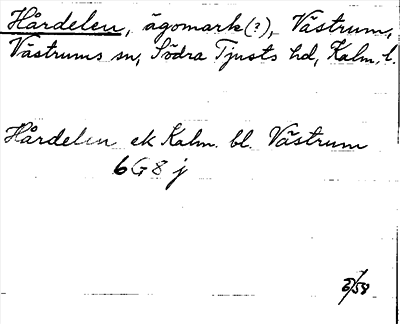 Hårdelen, ägomark(?), Västrum,
Västrums sn, Södra Tjusts hd, Kalm. l.
Hårdelen ek Kalm. bl. Västrum
6G8j
/58